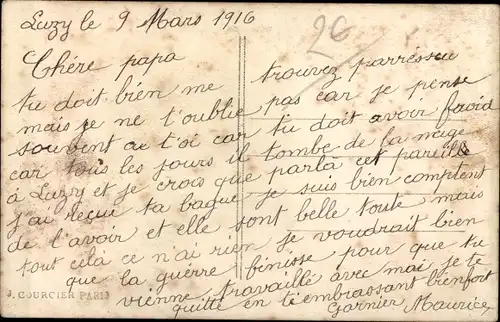 Luzy le 9 Mars 1916
26
Chére papa
tu doit bien me trouvez parréssu
mais je ne t'oublie pas car je pense
souvent au t'oi car tu doit avoir froid
car tous les jours il tombe de la nége
à Luzy et je crois que parla cet pareille
j'ai reçue ta bague je suis bien comptent
de l'avoir et elle sont belle toute mais
tout cela ce n'ai rien je voudrait bien
que la guerre finisse pour que tu
vienne travaillé avec mai je te
quitte en t'embrassant bienfort
Garnier Maurice
J. COURCIER PARIS